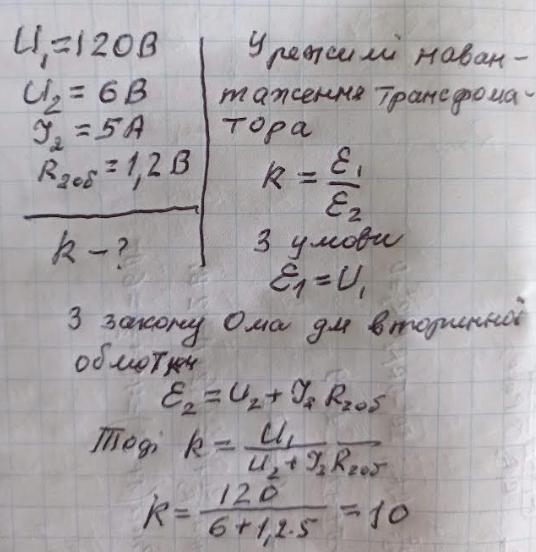 U₁ = 120 В
U₂ = 6 В
I₂ = 5 А
R₂об = 1,2 В
k - ?
У режимі наван-
таження трансфома-
тора
k = ℰ₁/ℰ₂
З умови
ℰ1 = U₁
З закону Ома для вторинної
обмотки
ℰ₂ = U₂ + I₂ R₂об
Тоді k = U₁/(U₂ + I₂ R₂об)
k = 120/(6 + 1,2·5) = 10